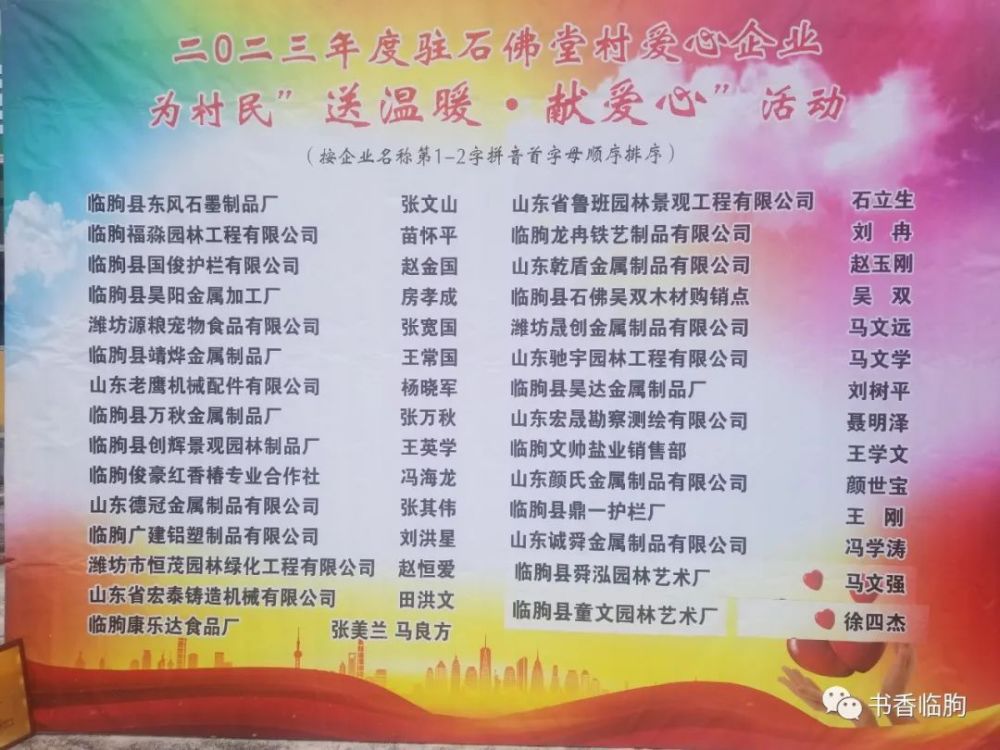 二0二三年度驻石佛堂村爱心企业
为村民”送温暖·献爱心”活动
(按企业名称第1-2字拼音首字母顺序排序)
临朐县东风石墨制品厂 张文山
临朐福淼园林工程有限公司 苗怀平
临朐县国俊护栏有限公司 赵金国
临朐县昊阳金属加工厂 房孝成
潍坊源粮宠物食品有限公司 张宽国
临朐县靖烨金属制品厂 王常国
山东老鹰机械配件有限公司 杨晓军
临朐县万秋金属制品厂 张万秋
临朐县创辉景观园林制品厂 王英学
临朐俊豪红香椿专业合作社 冯海龙
山东德冠金属制品有限公司 张其伟
临朐广建铝塑制品有限公司 刘洪星
潍坊市恒茂园林绿化工程有限公司 赵恒爱
山东省宏泰铸造机械有限公司 田洪文
临朐康乐达食品厂 张美兰 马良方
山东省鲁班园林景观工程有限公司 石立生
临朐龙冉铁艺制品有限公司 刘 冉
山东乾盾金属制品有限公司 赵玉刚
临朐县石佛吴双木材购销点 吴 双
潍坊晟创金属制品有限公司 马文远
山东驰宇园林工程有限公司 马文学
临朐县昊达金属制品厂 刘树平
山东宏晟勘察测绘有限公司 聂明泽
临朐文帅盐业销售部 王学文
山东颜氏金属制品有限公司 颜世宝
临朐县鼎一护栏厂 王 刚
山东诚舜金属制品有限公司 冯学涛
临朐县舜泓园林艺术厂 马文强
临朐县童文园林艺术厂 徐四杰
书香临朐